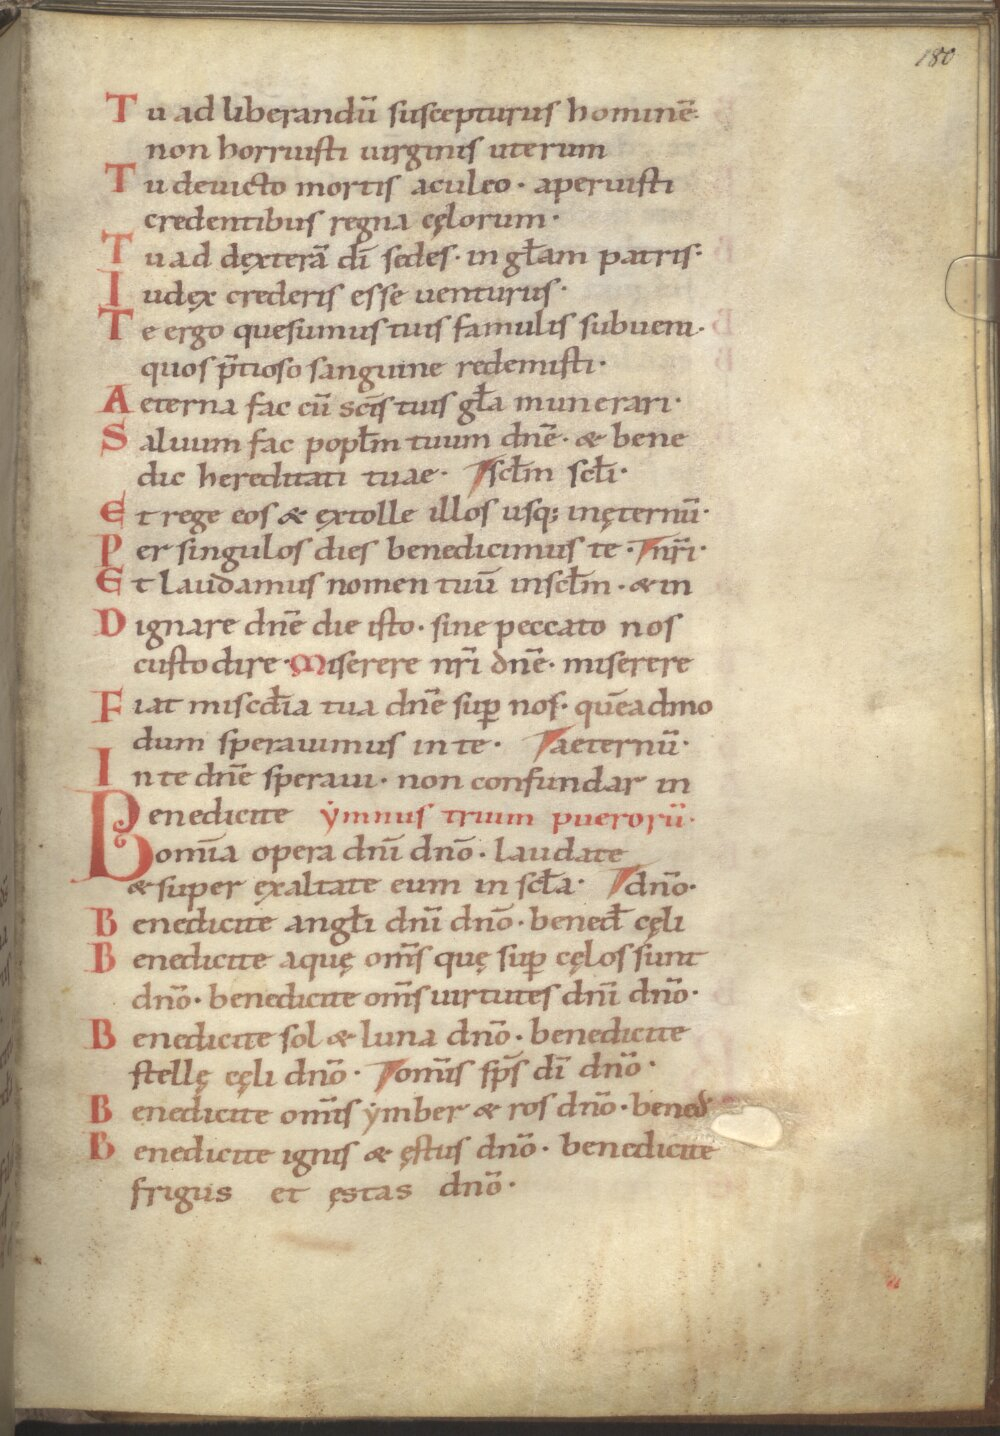 180
Tu ad liberandū suscepturus hominē:
non horruisti uirginis uterum
Tu deuicto mortis aculeo· aperuisti
credentibus regna cęlorum·
Tu ad dęxterā dī sedes· in gƚam patris·
Iudęx crederis esse uenturus·
Te ergo quesumus tuis famulis subueni·
quos p̄tioso sanguine redemisti·
Aeterna fac cū scīs tuis gƚa munerari·
Saluum fac popƚm tuum dnē· & bene
dic hereditati tuae· scƚm scƚi·
Et rege eos & ęxtolle illos usq; inęternū·
Per singulos dies benedicimus te· nr̄i·
Et laudamus nomen tuū inscƚm· & in
Dignare dnē die isto· sine peccato nos
custodire· Miserere nr̄i dnē· miserere
Fiat misc̄dia tua dnē sup̱ nos· quēadmo
dum sperauimus in te· aeternū·
In te dnē speraui· non confundar in
Benedicite ẏmnus trium puerorū·
omīa opera dnī dnō· laudate
& super ęxaltate eum in scƚa· dnō·
Benedicite angƚi dnī dnō· beneđ cęli
Benedicite aquę om̄s quę sup̱ cęlos sunt
dnō· benedicite om̄s uirtutes dnī dnō·
Benedicite sol & luna dnō· benedicite
stellę cęli dnō· om̄is sp̄s dī dnō·
Benedicite om̄is ẏmber & ros dnō· beneđ
Benedicite ignis & ęstus dnō· benedicite
frigus et ęstas dnō·